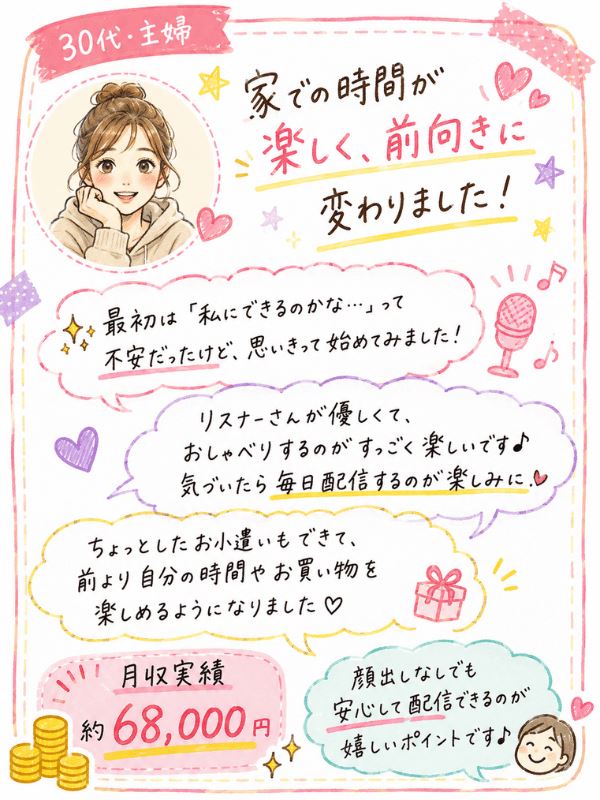 30代・主婦
家での時間が
楽しく、前向きに
変わりました!
最初は「私にできるのかな…」って
不安だったけど、思いきって始めてみました!
リスナーさんが優しくて、
おしゃべりするのがすっごく楽しいです♪
気づいたら毎日配信するのが楽しみに♥
ちょっとしたお小遣いもできて、
前より自分の時間やお買い物を
楽しめるようになりました♡
月収実績
約68,000円
顔出しなしでも
安心して配信できるのが
嬉しいポイントです♪